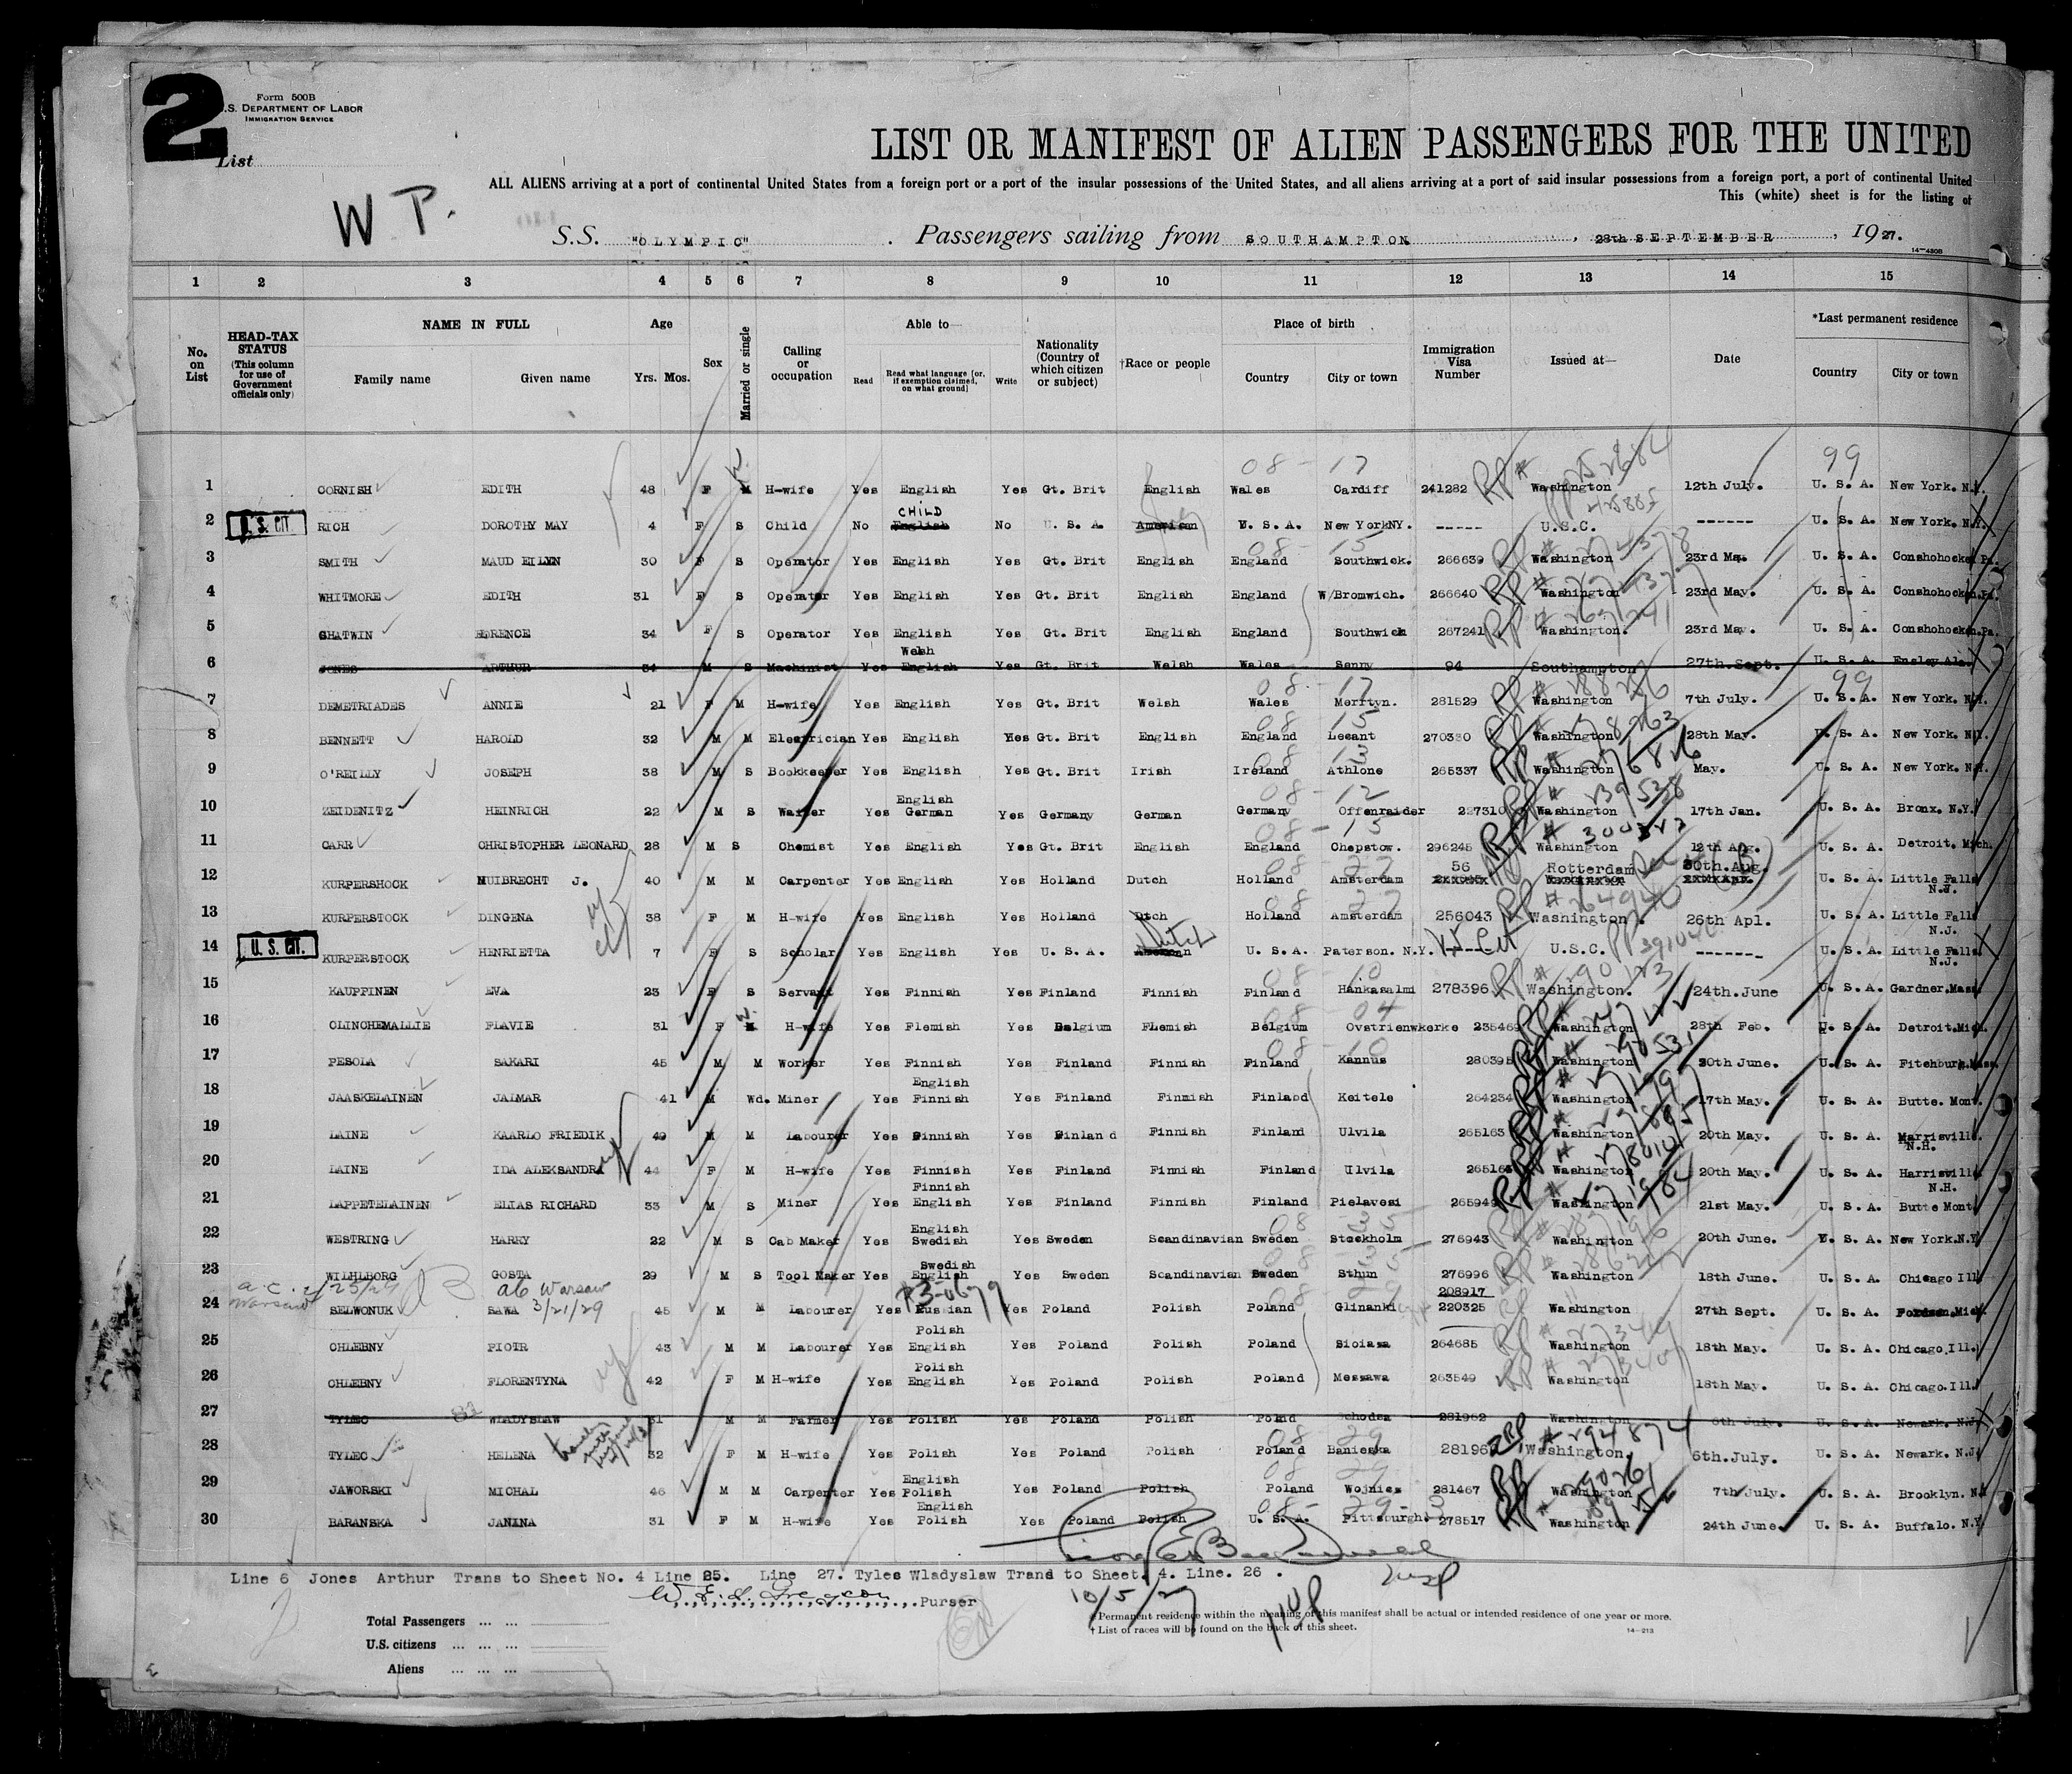 2
Form 500B
U.S. DEPARTMENT OF LABOR
IMMIGRATION SERVICE
List
W P.
LIST OR MANIFEST OF ALIEN PASSENGERS FOR THE UNITED
ALL ALIENS arriving at a port of continental United States from a foreign port or a port of the insular possessions of the United States, and all aliens arriving at a port of said insular possessions from a foreign port, a port of continental United
This (white) sheet is for the listing of
S.S. "OLYMPIC" . Passengers sailing from SOUTHAMPTON , 28th SEPTEMBER , 1927.
14—430B
1 2 3 4 5 6 7 8 9 10 11 12 13 14 15
No. on List
HEAD-TAX STATUS (This column for use of Government officials only)
NAME IN FULL
Family name Given name
Age
Yrs. Mos.
Sex
Married or single
Calling or occupation
Able to—
Read Read what language [or, if exemption claimed, on what ground] Write
Nationality (Country of which citizen or subject)
†Race or people
Place of birth
Country City or town
Immigration Visa Number
Issued at—
Date
*Last permanent residence
Country City or town
08 - 17 99
1 CORNISH EDITH 48 F M H-wife Yes English Yes Gt. Brit English Wales Cardiff 241282 Washington 12th July. U. S. A. New York. N.Y.
CHILD
2 U.S. CIT RICH DOROTHY MAY 4 F S Child No English No U. S. A. American U. S. A. New YorkNY. ----- U.S.C. ------ U. S. A. New York. N.Y.
3 SMITH MAUD EILYN 30 F S Operator Yes English Yes Gt. Brit English England Southwick. 266639 Washington 23rd May. U. S. A. Conshohocken Pa.
4 WHITMORE EDITH 31 F S Operator Yes English Yes Gt. Brit English England W/Bromwich. 266640 Washington 23rd May. U. S. A. Conshohocken.Pa.
5 CHATWIN 34 F S Operator Yes English Yes Gt. Brit English England Southwick 267241 Washington. 23rd May. U. S. A. Conshohocken.Pa.
Welsh
6 JONES ARTHUR 34 M S Machinist Yes English Yes Gt. Brit Welsh Wales Senny 94 Southampton 27th.Sept. U. S. A. Ensley Ala.
08 - 17 99
7 DEMETRIADES ANNIE 21 F M H-wife Yes English Yes Gt. Brit Welsh Wales Merftyn. 281529 Washington 7th July. U. S. A. New York. N.Y.
08 15
8 BENNETT HAROLD 32 M M Electrician Yes English Yes Gt. Brit English England Lecant 270330 Washington 28th May. U. S. A. New York. N.Y.
08 13
9 O'REILLY JOSEPH 38 M S Bookkeeper Yes English Yes Gt. Brit Irish Ireland Athlone 265337 Washington May. U. S. A. New York. N.Y.
08 - 12
English
10 ZEIDENITZ HEINRICH 22 M S Waiter Yes German Yes Germany German Germany Offenraider 227310 Washington 17th Jan. U. S. A. Bronx. N.Y.
08 - 15
11 CARR CHRISTOPHER LEONARD 28 M S Chemist Yes English Yes Gt. Brit English England Chepstow. 296245 Washington 12th Aug. U. S. A. Detroit. Mich.
56 Rotterdam 30th.Aug.
12 KURPERSHOCK HUIBRECHT J. 40 M M Carpenter Yes English Yes Holland Dutch Holland Amsterdam U. S. A. Little Falls N.J.
13 KURPERSTOCK DINGENA 38 F M H-wife Yes English Yes Holland Dtch Holland Amsterdam 256043 Washington. 26th Apl. U. S. A. Little Falls N.J.
Dutch
14 U. S. CIT. KURPERSTOCK HENRIETTA 7 F S Scholar Yes English Yes U. S. A. American U. S. A. Paterson. N.Y. U.S.C. ------- U. S. A. Little Falls N.J.
08 - 10
15 KAUPPINEN EVA 23 F S Servant Yes Finnish Yes Finland Finnish Finland Hankasalmi 278396 Washington. 24th.June U. S. A. Gardner.Mass.
08 - 04
16 CLINCHEMALLIE FLAVIE 31 F M H-wife Yes Flemish Yes Belgium Flemish Belgium Ovstrienwkerke 235469 Washington 28th Feb. U. S. A. Detroit.Mich.
08 - 10
17 PESOLA SAKARI 45 M M Worker Yes Finnish Yes Finland Finnish Finland Kannus 280395 Washington 30th June. U. S. A. Fitchburg.Mass.
English
18 JAASKELAINEN JALMAR 41 M Wd. Miner Yes Finnish Yes Finland Finnish Finlabd Keitele 264234 Washington 17th May. U. S. A. Butte. Mont.
19 LAINE KAARLO FRIEDIK 49 M M Labourer Yes Finnish Yes Finland Finnish Finland Ulvila 265163 Washington 20th May. U. S. A. Harrisville. N.H.
20 LAINE IDA ALEKSANDRA 44 F M H-wife Yes Finnish Yes Finland Finnish Finland Ulvila 265163 Washington 20th May. U. S. A. Harrisville N.H.
Finnish
21 LAPPETELAINEN ELIAS RICHARD 33 M S Miner Yes English Yes Finland Finnish Finland Pielavesi 265949 Washington 21st May. U. S. A. Butte Mont.
08 35
English
22 WESTRING HARRY 22 M S Cab Maker Yes Swedish Yes Sweden Scandinavian Sweden Stockholm 276943 Washington 20th June. U. S. A. New York.N.Y.
08 - 35
Swedish
23 WILHLBORG GOSTA 29 M S Tool Maker Yes English Yes Sweden Scandinavian Sweden Sthun 276996 Washington 18th June. U. S. A. Chicago Ill.
a.c. Warsaw ab Warsaw 3/21/29
208917
24 SELWONUK SAWA 45 M M Labourer Yes Russian Yes Poland Polish Poland Glinanki 220325 Washington 27th Sept. U. S. A. Fordson.Mich.
Polish
25 CHLEBNY PIOTR 43 M M Labourer Yes English Yes Poland Polish Poland Sioiasa 264685 Washington 18th May. U. S. A. Chicago.Ill.
Polish
26 CHLEBNY FLORENTYNA 42 F M H-wife Yes English Yes Poland Polish Poland Messawa 263549 Washington 18th May. U. S. A. Chicago.Ill.
27 TYLEC WLADYSLAW 31 M M Farmer Yes Polish Yes Poland Polish Poland 281962 Washington 6th July. U. S. A. Newark. N.J.
08 29
28 TYLEC HELENA 32 F M H-wife Yes Polish Yes Poland Polish Poland Banieska 281962 Washington. 6th.July. U. S. A. Newark. N.J.
08 29
English
29 JAWORSKI MICHAL 46 M M Carpenter Yes Polish Yes Poland Polish Poland Wojnies 281467 Washington 7th July. U. S. A. Brooklyn. N.Y.
08 - 29 - 3
English
30 BARANSKA JANINA 31 F M H-wife Yes Polish Yes Poland Polish U. S. A. Pittsburgh. 278517 Washington 24th June. U. S. A. Buffalo. N.Y.
Line 6 Jones Arthur Trans to Sheet No. 4 Line 25. Line 27. Tyles Wladyslaw Trand to Sheet. 4. Line. 26 .
Purser
10/5/27
Total Passengers ... ...
U.S. citizens ... ... ...
Aliens ... ... ...
* Permanent residence within the meaning of this manifest shall be actual or intended residence of one year or more.
† List of races will be found on the back of this sheet.
14—213